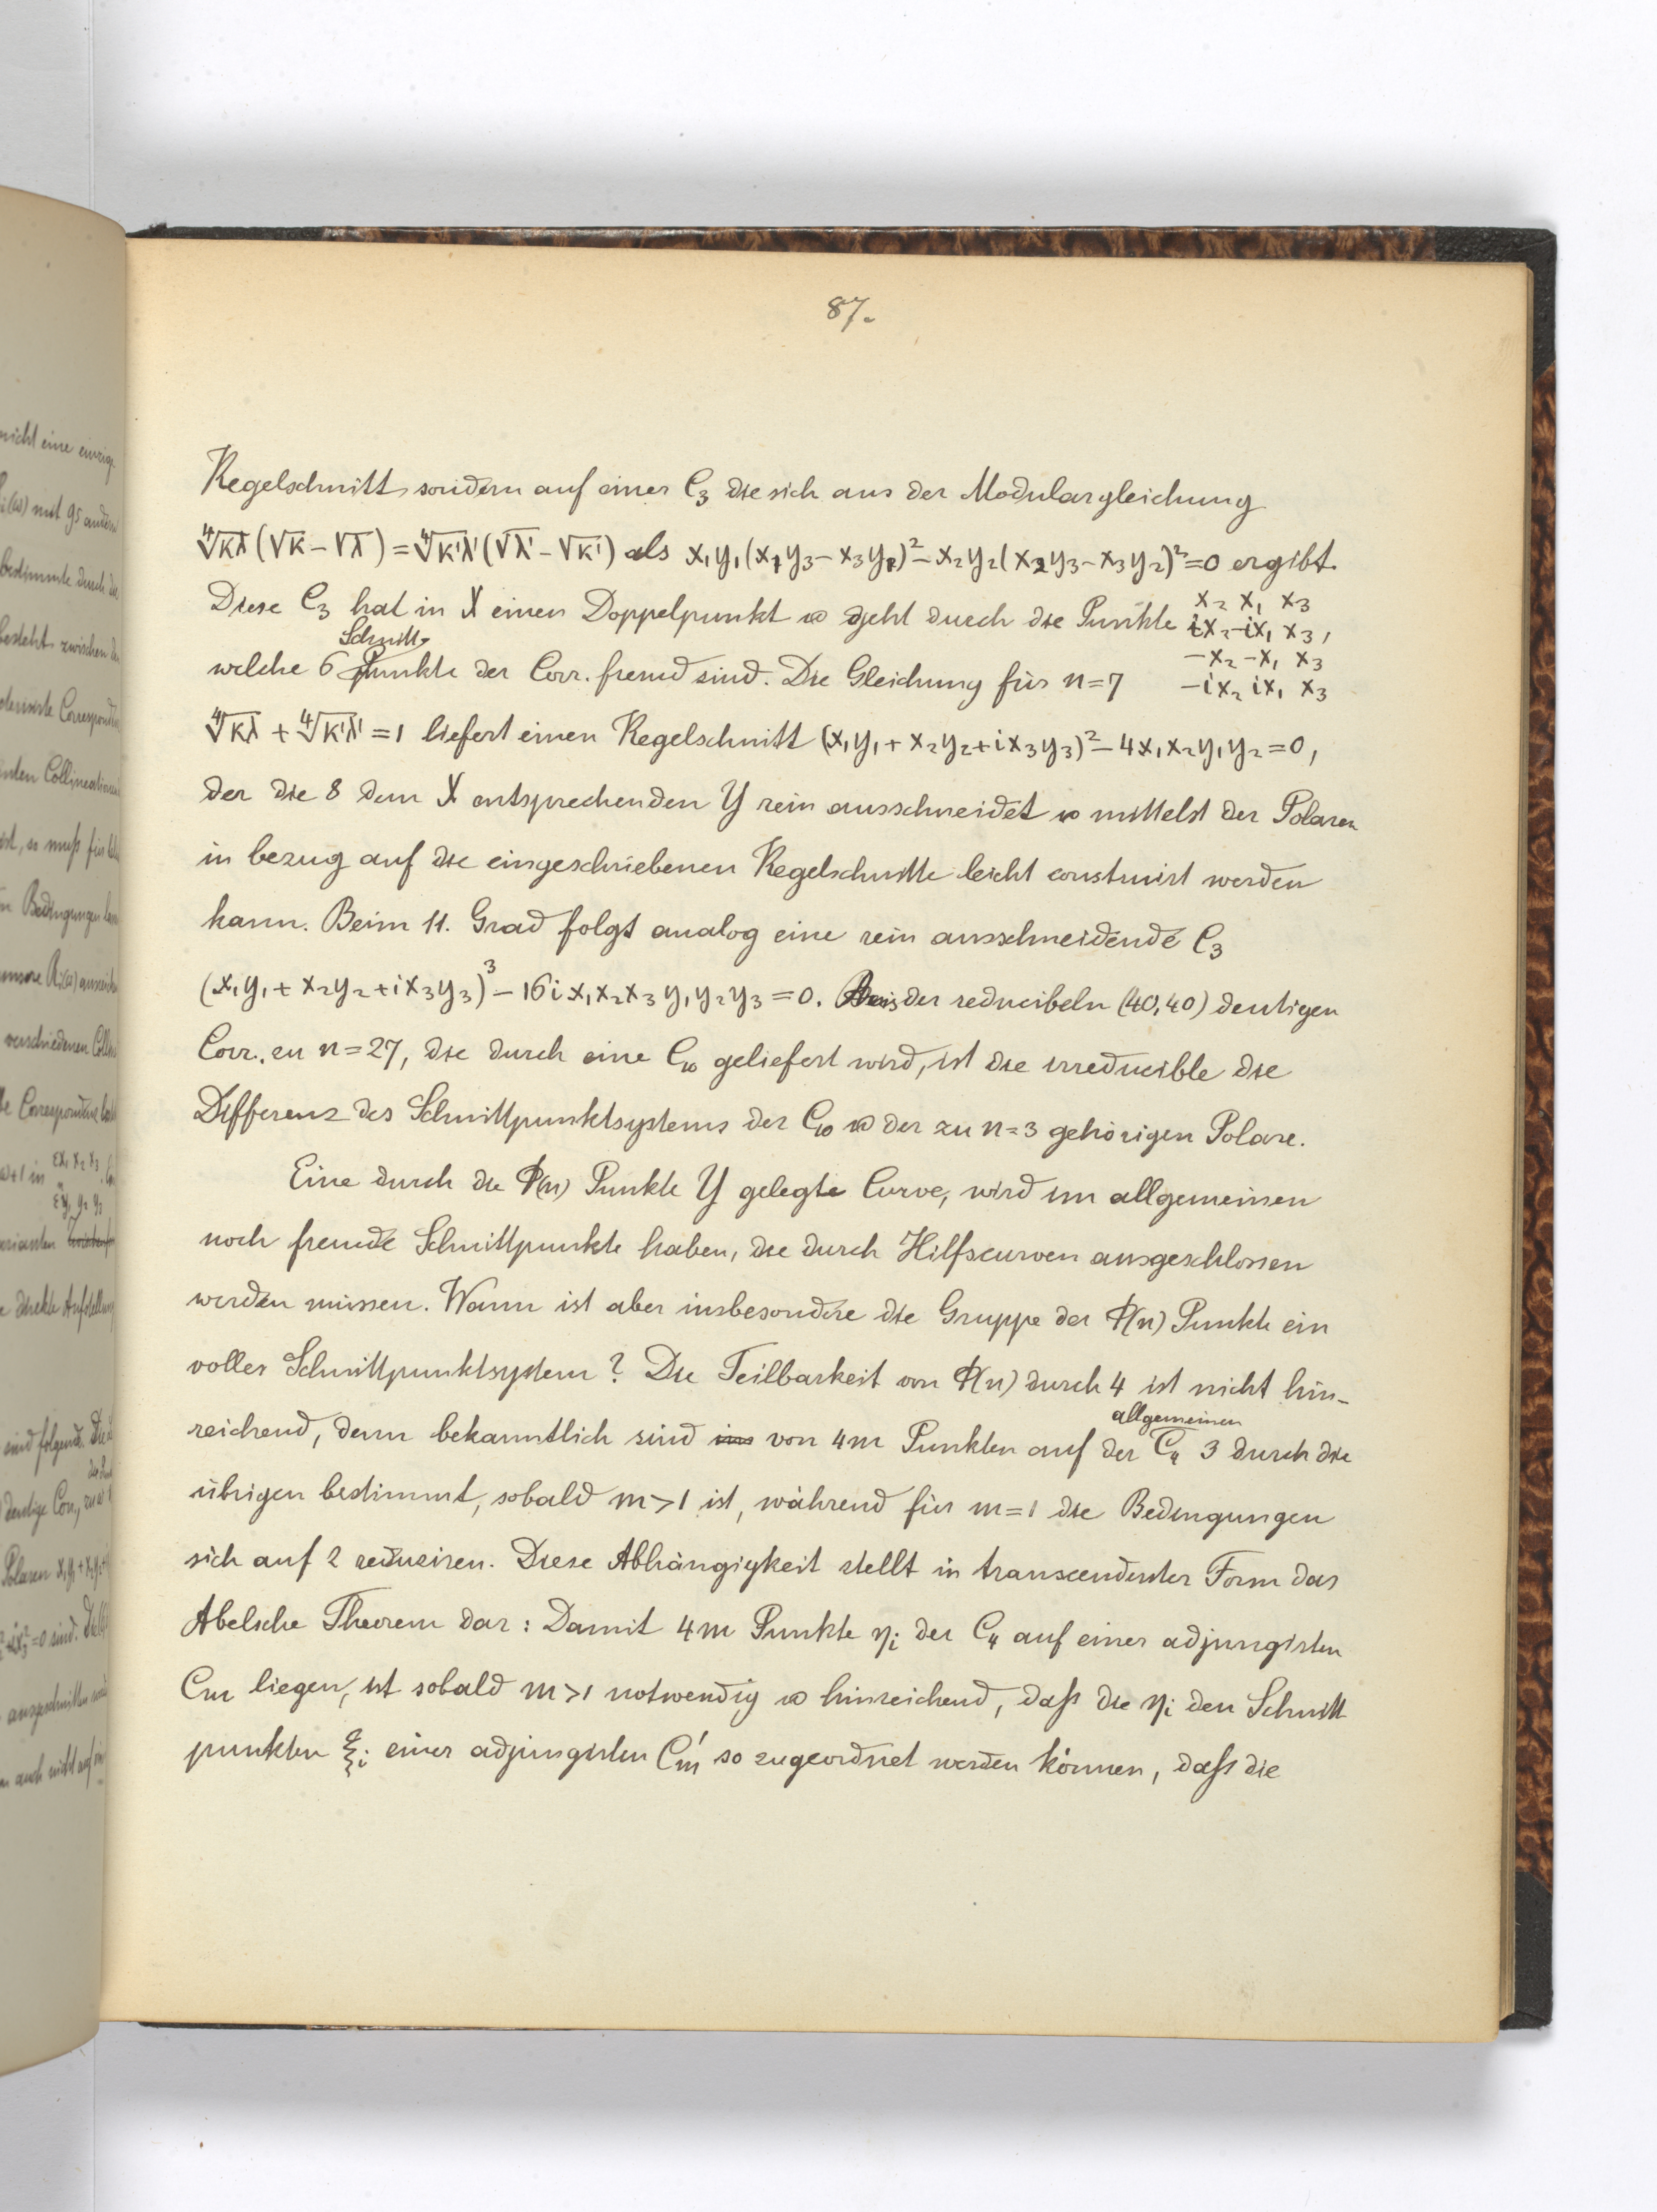 87.
Kegelschnitt, sondern auf einer C₃ die sich aus der Modulargleichung
∜κλ (√κ − √λ) = ∜κ'λ' (√λ' − √κ') als x₁y₁(x₁y₃−x₃y₁)² − x₂y₂(x₂y₃−x₃y₂)² = 0 ergibt.
Diese C₃ hat in X einen Doppelpunkt u geht durch die Punkte x₂ x₁ x₃
ix₂ −ix₁ x₃,
−x₂ −x₁ x₃
−ix₂ ix₁ x₃
Schnitt-
welche 6 Punkte der Corr. fremd sind. Die Gleichung für n=7
∜κλ + ∜κ'λ' = 1 liefert einen Kegelschnitt (x₁y₁ + x₂y₂ + ix₃y₃)² − 4x₁x₂y₁y₂ = 0,
der die 8 dem X entsprechenden Y rein ausschneidet u mittelst der Polaren
in bezug auf die eingeschriebenen Kegelschnitte leicht construirt werden
kann. Beim 11. Grad folgt analog eine rein ausschneidende C₃
(x₁y₁ + x₂y₂ + ix₃y₃)³ − 16i x₁x₂x₃ y₁y₂y₃ = 0. Aus der reducibeln (40,40) deutigen
Corr. zu n=27, die durch eine C₁₀ geliefert wird, ist die irreducible die
Differenz des Schnittpunktsystems der C₁₀ u der zu n=3 gehörigen Polare.
Eine durch die Φ(n) Punkte Y gelegte Curve, wird im allgemeinen
noch fremde Schnittpunkte haben, die durch Hilfscurven ausgeschlossen
werden müssen. Wann ist aber insbesondere die Gruppe der Φ(n) Punkte ein
volles Schnittpunktsystem? Die Teilbarkeit von Φ(n) durch 4 ist nicht hin-
allgemeinen
reichend, denn bekanntlich sind von 4m Punkten auf der C₄ 3 durch die
übrigen bestimmt, sobald m>1 ist, während für m=1 die Bedingungen
sich auf 2 reduziren. Diese Abhängigkeit stellt in transcendenter Form das
Abelsche Theorem dar: Damit 4m Punkte ηᵢ der C₄ auf einer adjungirten
Cm liegen, ist sobald m>1 notwendig u hinreichend, daß die ηᵢ den Schnitt
punkten ξᵢ einer adjungirten C'm so zugeordnet werden können, daß die